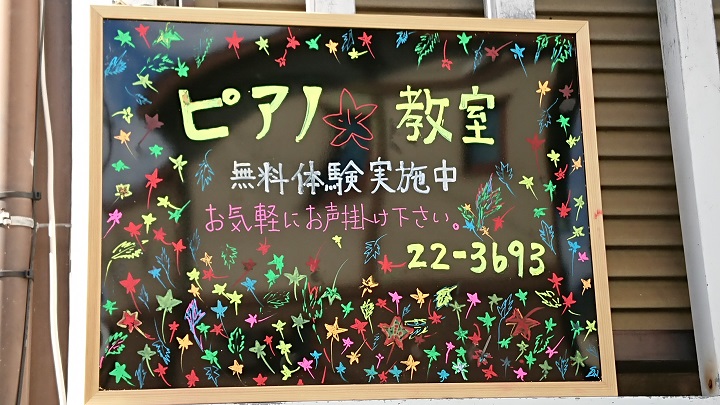 ピアノ 教室
無料体験実施中
お気軽にお声掛け下さい。
22-3693